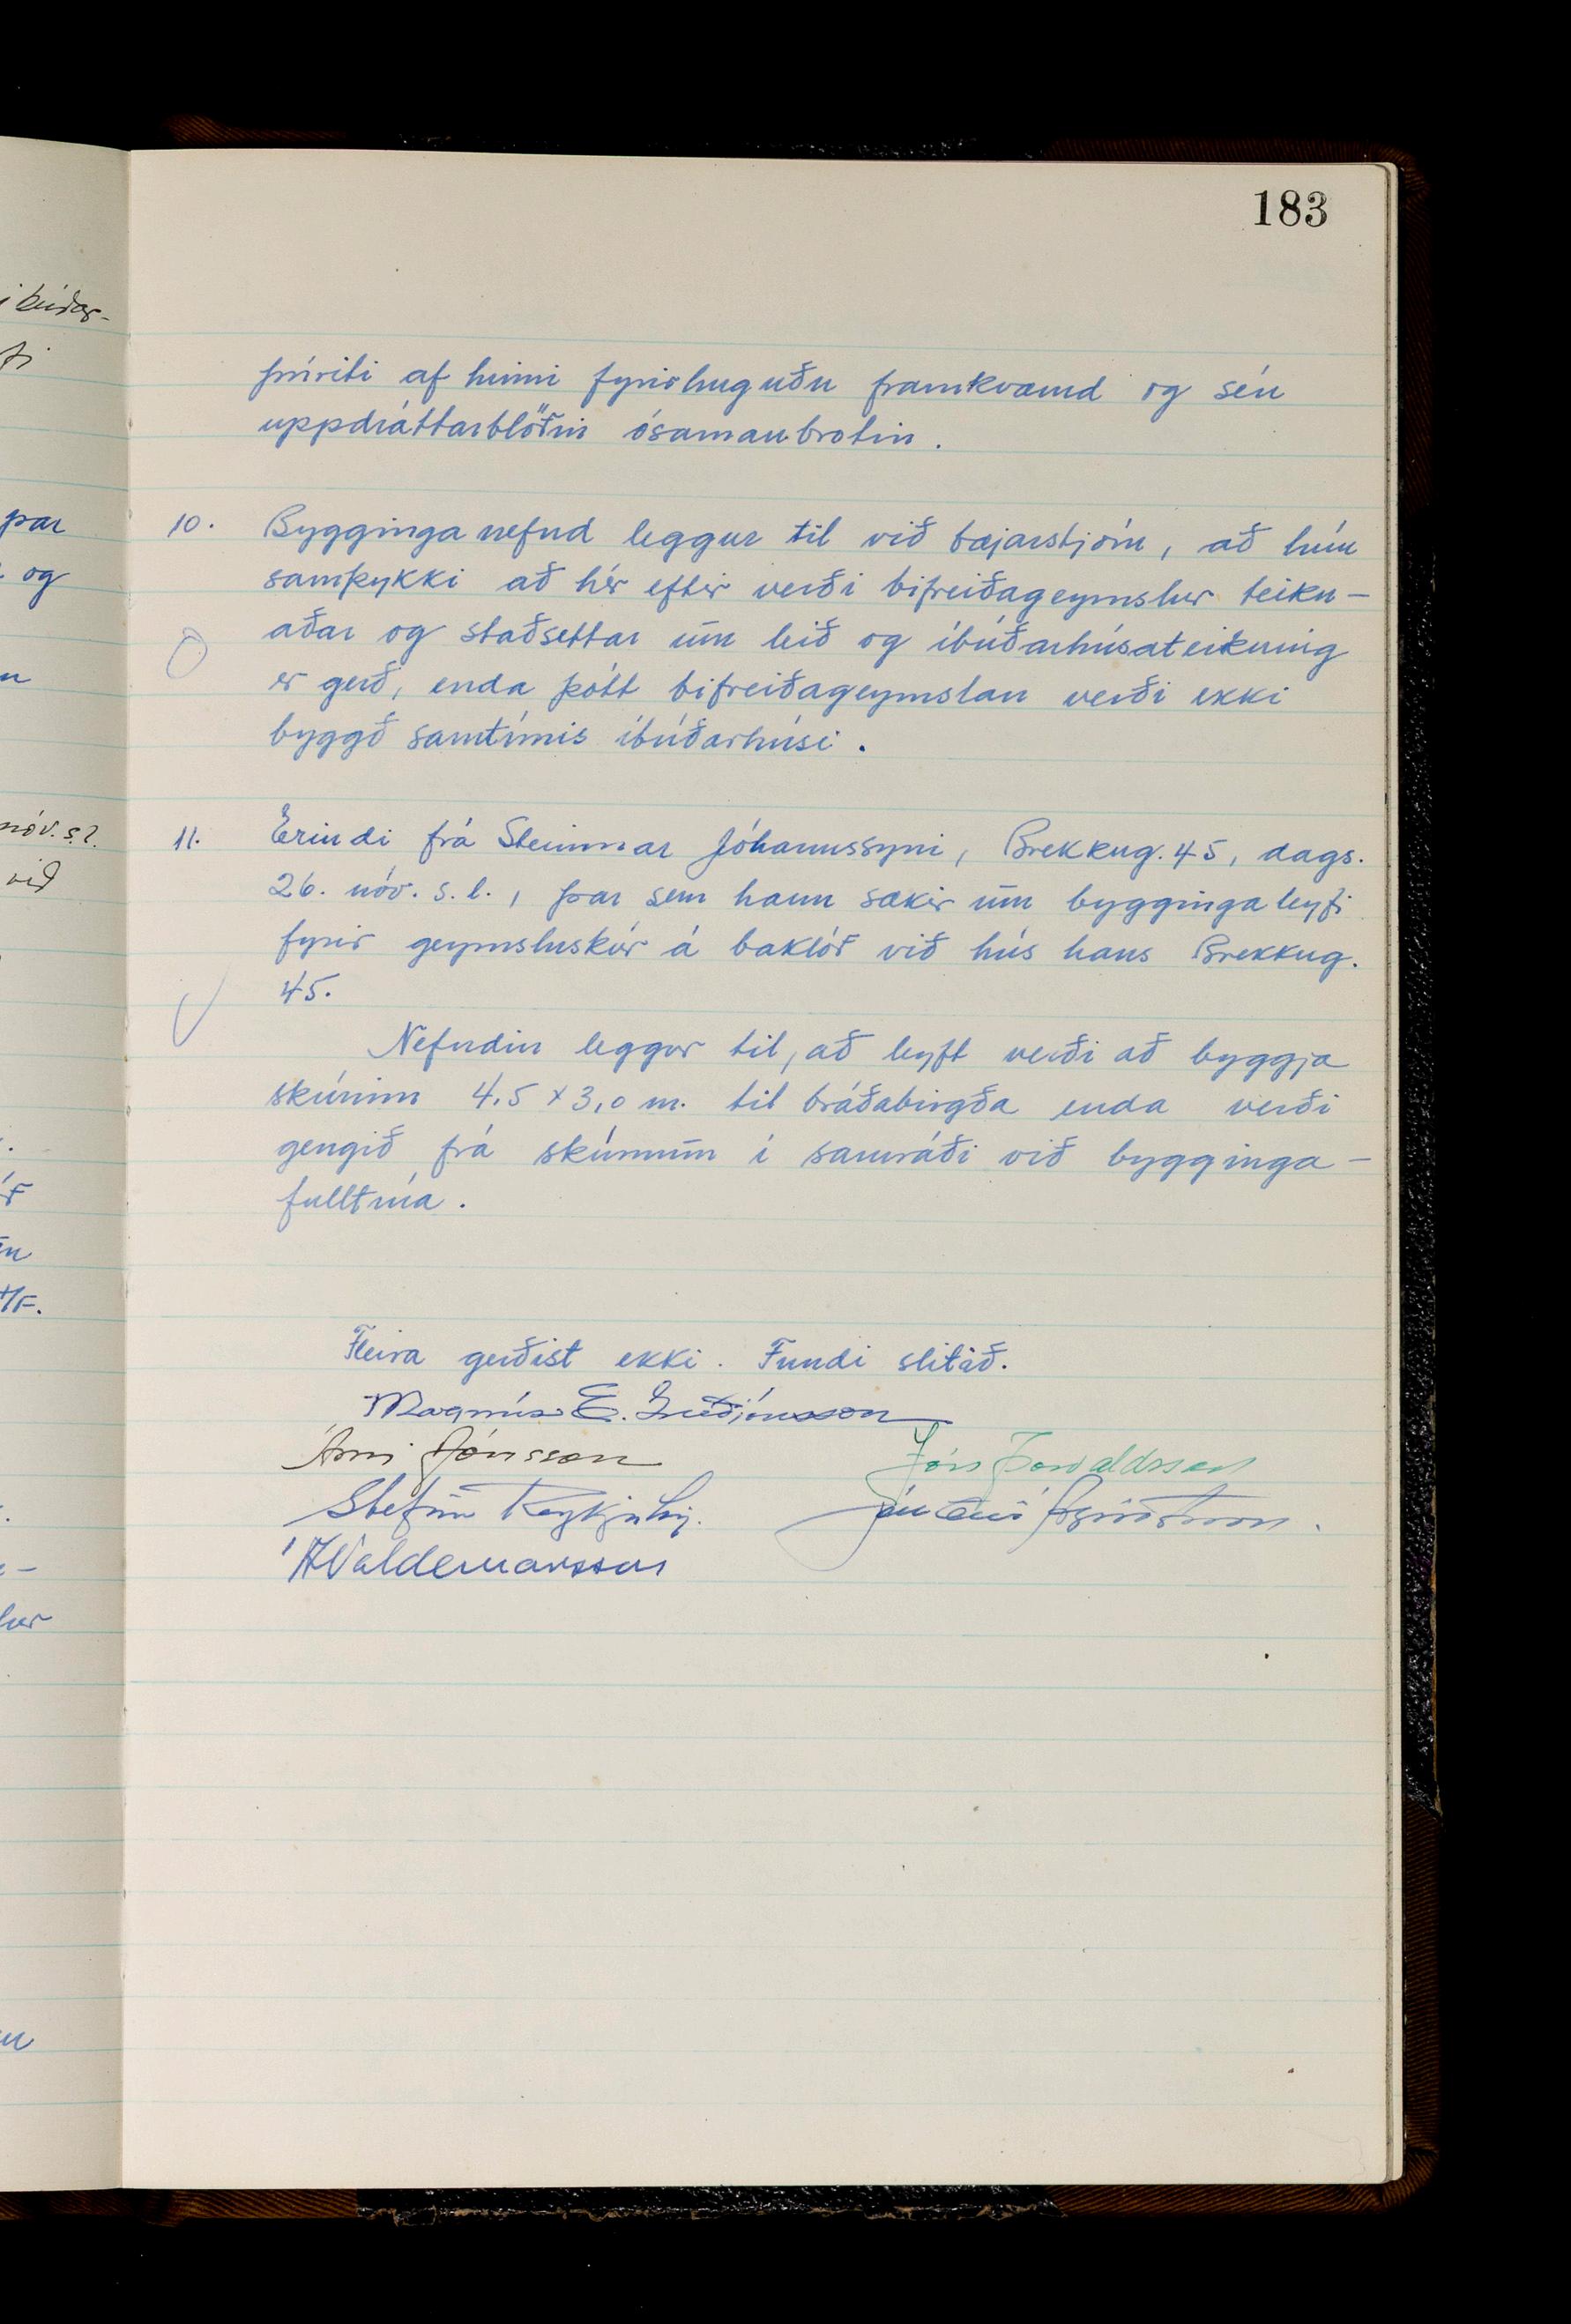 183
þríriti af hinni fyrirhuguðu framkvæmd og séu
uppdráttarblöðin ósamanbrotin.
10. Bygginganefnd leggur til við bæjarstjórn, að hún
samþykki að hér eftir verði bifreiðageymslur teikn-
aðar og staðsettar um leið og íbúðarhúsateikning
er gerð, enda þótt bifreiðageymslan verði ekki
byggð samtímis íbúðarhúsi.
11. Erindi frá Steinmar Jóhannssyni, Brekkug. 45, dags.
26. nóv. s.l., þar sem hann sækir um byggingaleyfi
fyrir geymsluskúr á baklóð við hús hans Brekkug.
45.
Nefndin leggur til, að leyft verði að byggja
skúrinn 4,5 x 3,0 m. til bráðabirgða enda verði
gengið frá skúrnum í samráði við bygginga-
fulltrúa.
Fleira gerðist ekki. Fundi slitið.
Magnús E. Guðjónsson
Árni Jónsson
Jón Þorvaldsson
Stefán Reykjalín.
Valdemarsson
íbúðar-
þar
og
nóv. s.l.
við
H/F.